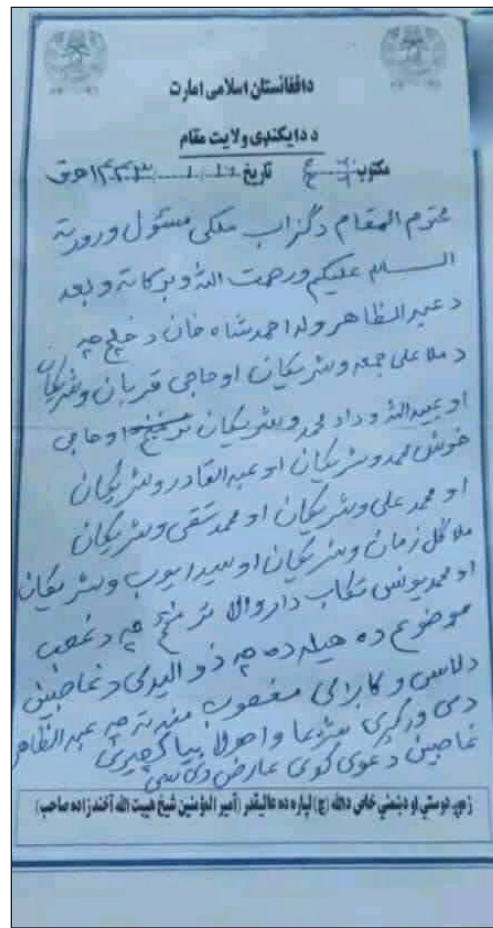 دافغانستان اسلامی امارت
د دایکندی ولایت مقام
مکتوب تاریخ ۱۴۴۳ هـ ق
محترم المقام د گزاب ملکی مسئول ورور ته
السلام علیکم ورحمت الله وبرکاته وبعد
د عبدالظاهر ولد احمدشاه خان د خلج چه
د ملا علی جمعه وشریکان او حاجی قربان وشریکان
او عبیدالله وداد محمد وشریکان ترمنځ او حاجی
خوش محمد وشریکان او عبدالقادر وشریکان
او محمد علی وشریکان او محمد تقی وشریکان
ملا گل زمان وشریکان او سید ایوب وشریکان
او محمد یونس تکاب دار والا ترمنځ چه د غصب
موضوع ده هیله ده چه ذوالیدی د غاصبین
د لاس و کابرامی مغصوب منه ته چه عبدالظاهر
دی ورکړی شرعا واصولا بیا که چیری
غاصبین دعوی کوی عارض دی سی
زموږ دوستي او دښمني خاص دالله (ج) لپاره ده عالیقدر (أمیر المؤمنین شیخ هیبت الله آخند زاده صاحب)